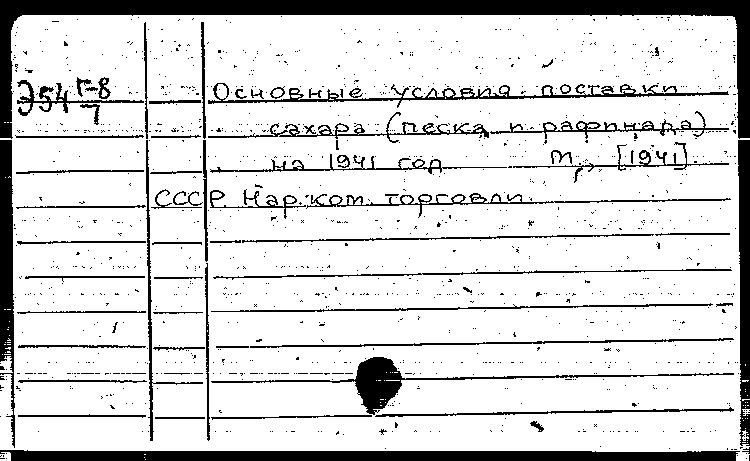 Э54 Г-8/7
Основные условия поставки
сахара (песка и рафинада)
на 1941 год М., [1941].
СССР. Нар. ком. торговли.